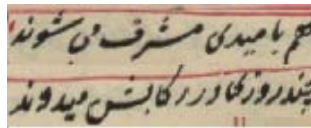 هم بامیدی مشرف می شوند
چند روزی در رکابش میدوند